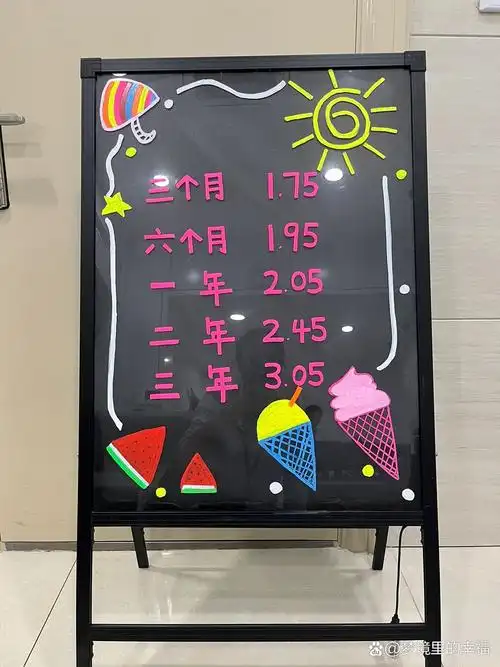 三个月 1.75
六个月 1.95
一年 2.05
二年 2.45
三年 3.05
Baidu百度 @梦境里的幸福